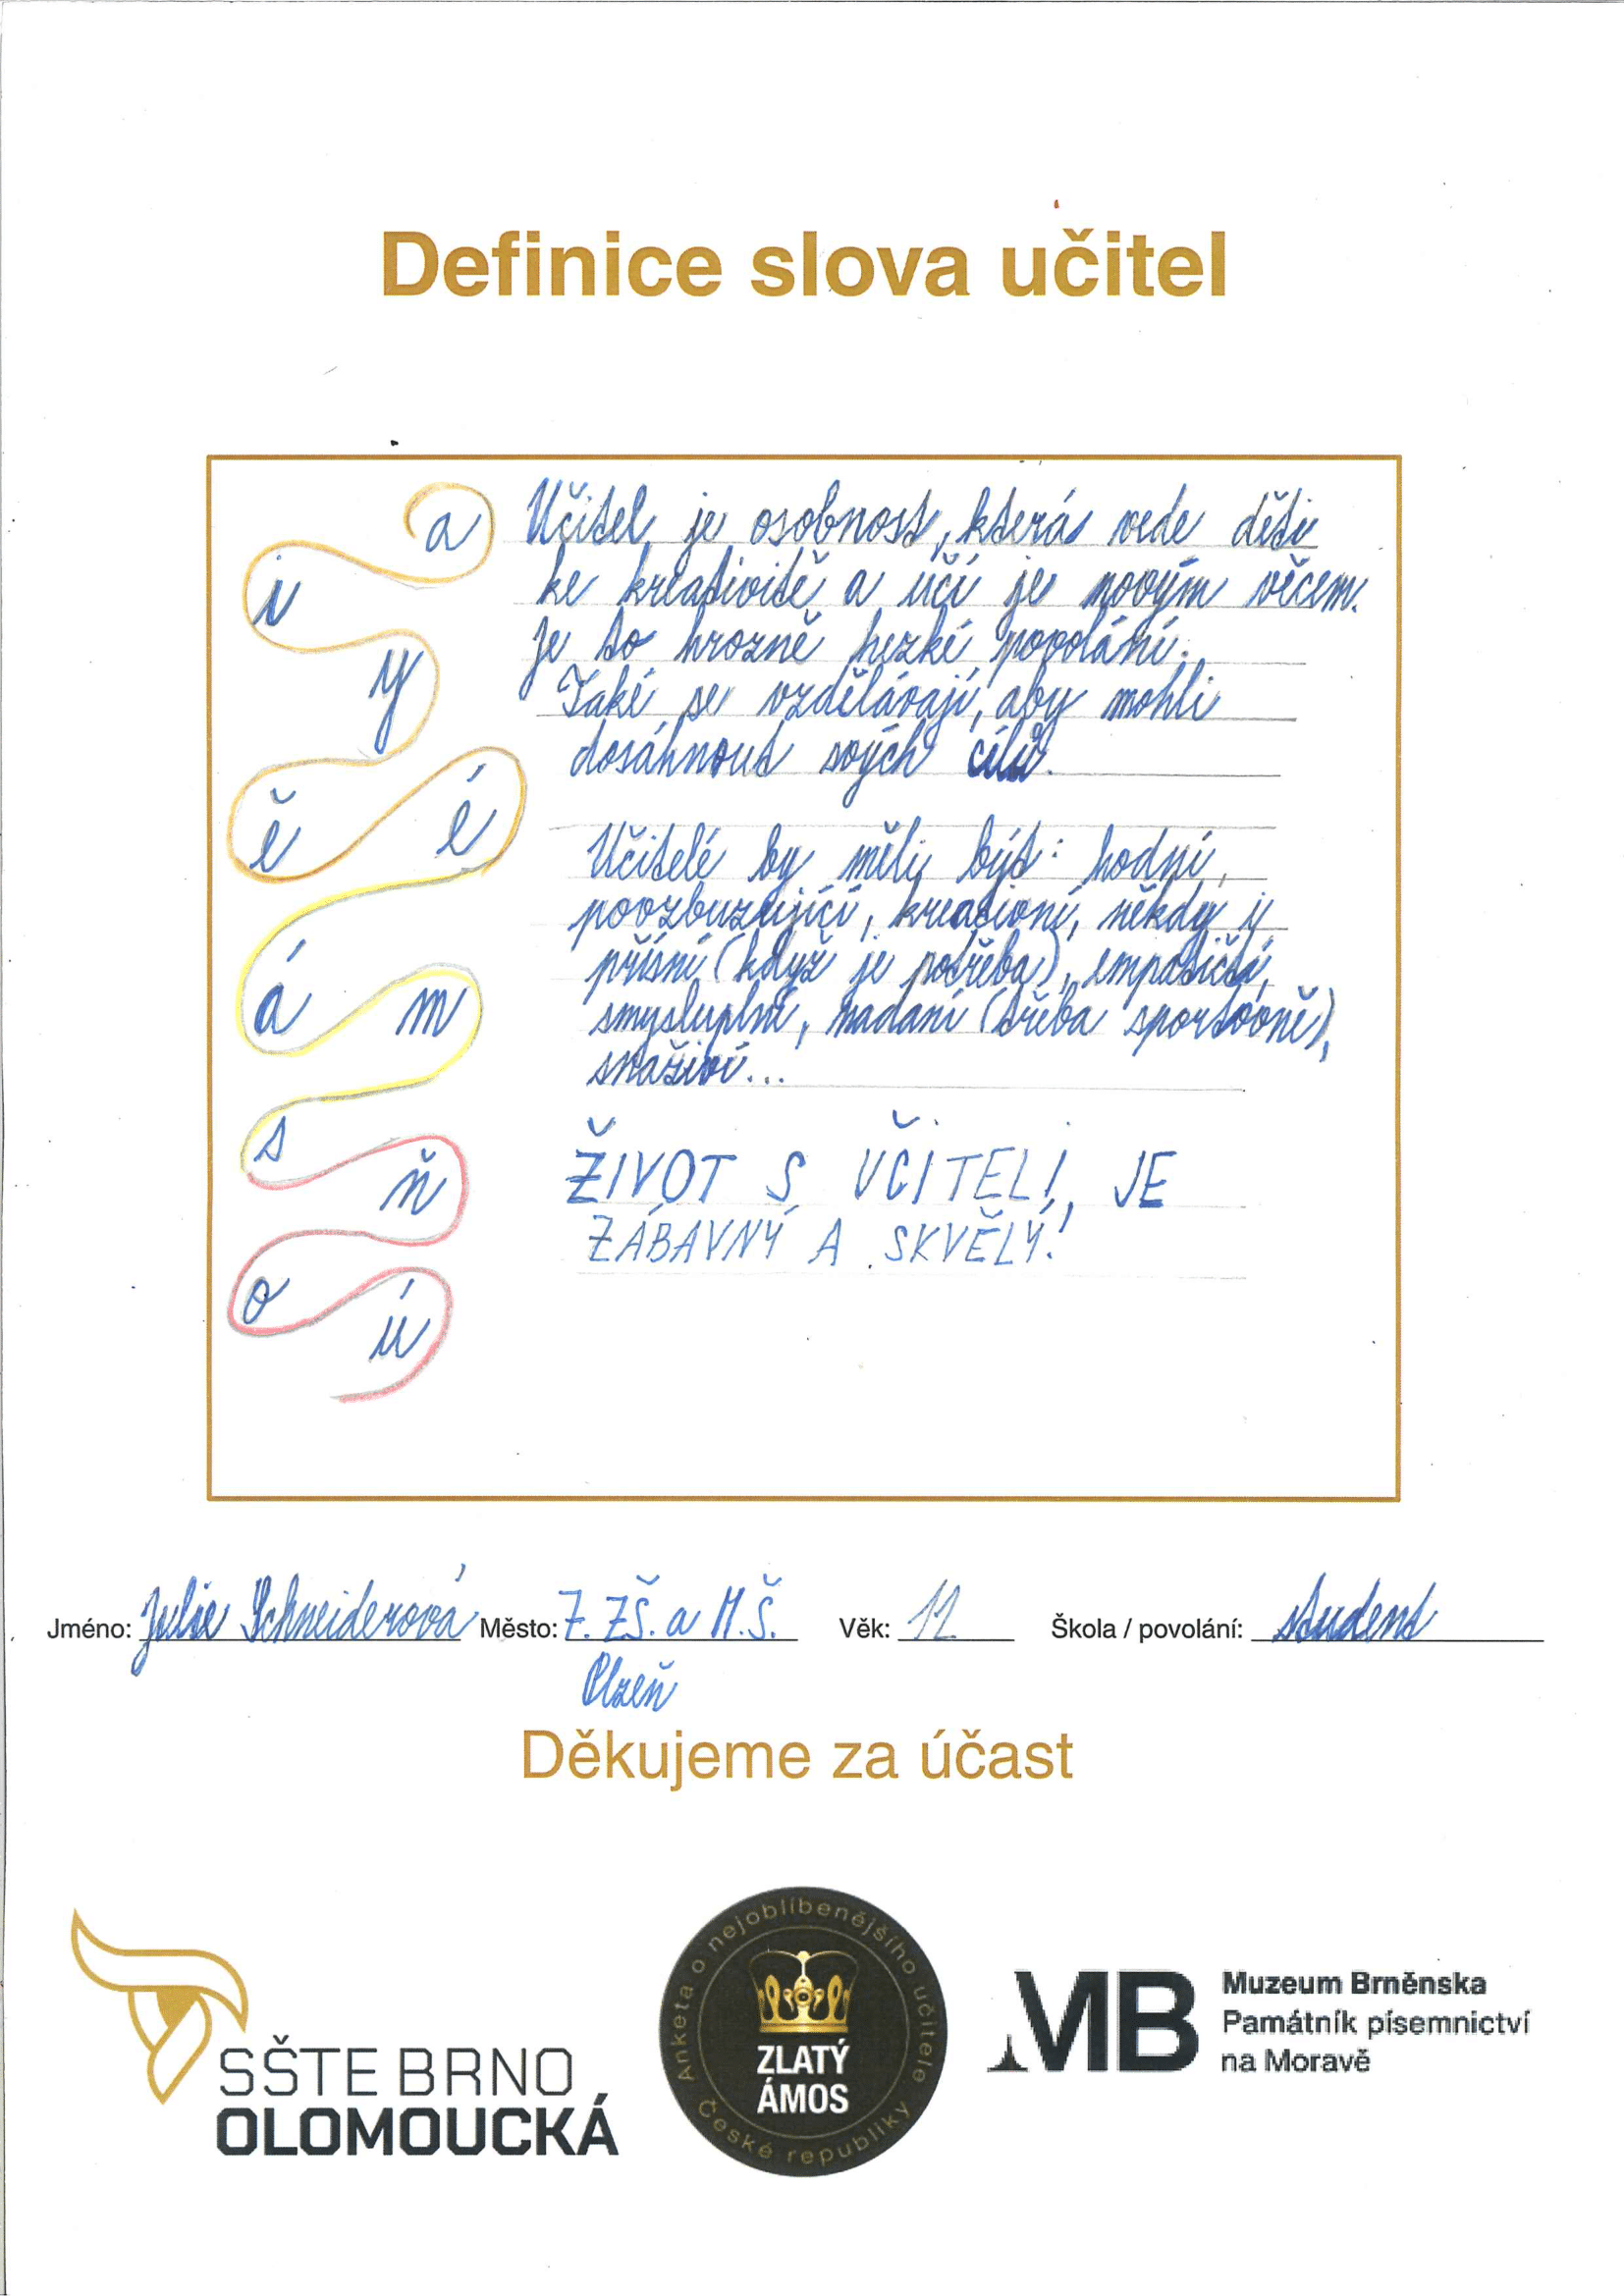 Definice slova učitel
a
i
y
ě
é
á
m
s
ň
o
ú
Učitel je osobnost, která vede děti
ke kreativitě a učí je novým věcem.
Je to hrozně hezké povolání.
Také se vzdělávají, aby mohli
dosáhnout svých cílů.
Učitelé by měli být: hodní,
povzbuzující, kreativní, někdy i
přísní (když je potřeba), empatičtí,
smysluplní, nadaní (třeba sportovně),
snaživí...
ŽIVOT S UČITELI, JE
ZÁBAVNÝ A SKVĚLÝ!
Jméno: Julie Schneiderová Město: 7. ZŠ. a M.Š. Věk: 12 Škola / povolání: student
Plzeň
Děkujeme za účast
SŠTE BRNO
OLOMOUCKÁ
Anketa o nejoblíbenějšího učitele
České republiky
ZLATÝ
ÁMOS
MB
Muzeum Brněnska
Památník písemnictví
na Moravě